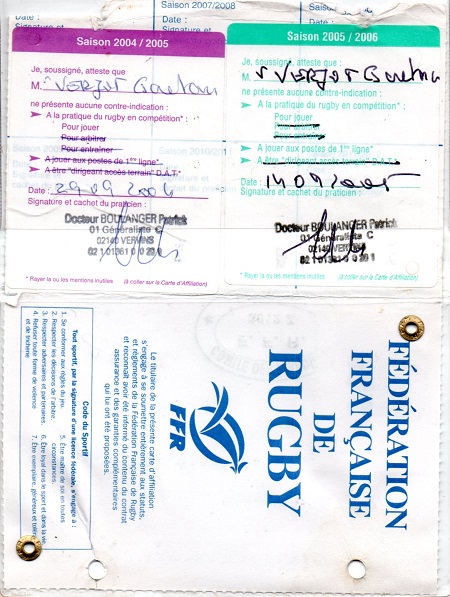 Saison 2007/2008
Date :
Signature et
Saison 2004 / 2005
Je, soussigné, atteste que
M. VERJOT Gaetan
ne présente aucune contre-indication :
➤ A la pratique du rugby en compétition* :
Pour jouer
Pour arbitrer
Pour entraîner
➤ A jouer aux postes de 1ère ligne*
➤ A être "dirigeant accès terrain" D.A.T.*
Date : 29 09 2004
Signature et cachet du praticien :
Docteur BOULANGER Patrick
01 Généraliste C
02140 VERVINS
02 1 01361 0 0 20 1
* Rayer la ou les mentions inutiles (à coller sur la Carte d'Affiliation)
Saison 2005 / 2006
Je, soussigné, atteste que
M. VERJOT Gaetan
ne présente aucune contre-indication :
➤ A la pratique du rugby en compétition* :
Pour jouer
Pour arbitrer
Pour entraîner
➤ A jouer aux postes de 1ère ligne*
➤ A être "dirigeant accès terrain" D.A.T.*
Date : 14 09 2005
Signature et cachet du praticien :
Docteur BOULANGER Patrick
01 Généraliste C
02140 VERVINS
02 1 01361 0 0 20 1
* Rayer la ou les mentions inutiles (à coller sur la Carte d'Affiliation)
FÉDÉRATION
FRANÇAISE
DE
RUGBY
FFR
Le titulaire de la présente carte d'affiliation
s'engage à se soumettre entièrement aux statuts
et règlements de la Fédération Française de Rugby
et reconnaît avoir été informé du contenu du contrat
assurance et des garanties complémentaires
qui lui ont été proposées.
Code du Sportif
Tout sportif, par la signature d'une licence fédérale, s'engage à :
1. Se conformer aux règles du jeu.
2. Respecter les décisions de l'arbitre.
3. Respecter adversaires et partenaires.
4. Refuser toute forme de violence
et de tricherie
5. Être maître de soi en toutes
circonstances.
6. Être loyal dans le sport et dans la vie.
7. Être exemplaire, généreux et tolérant